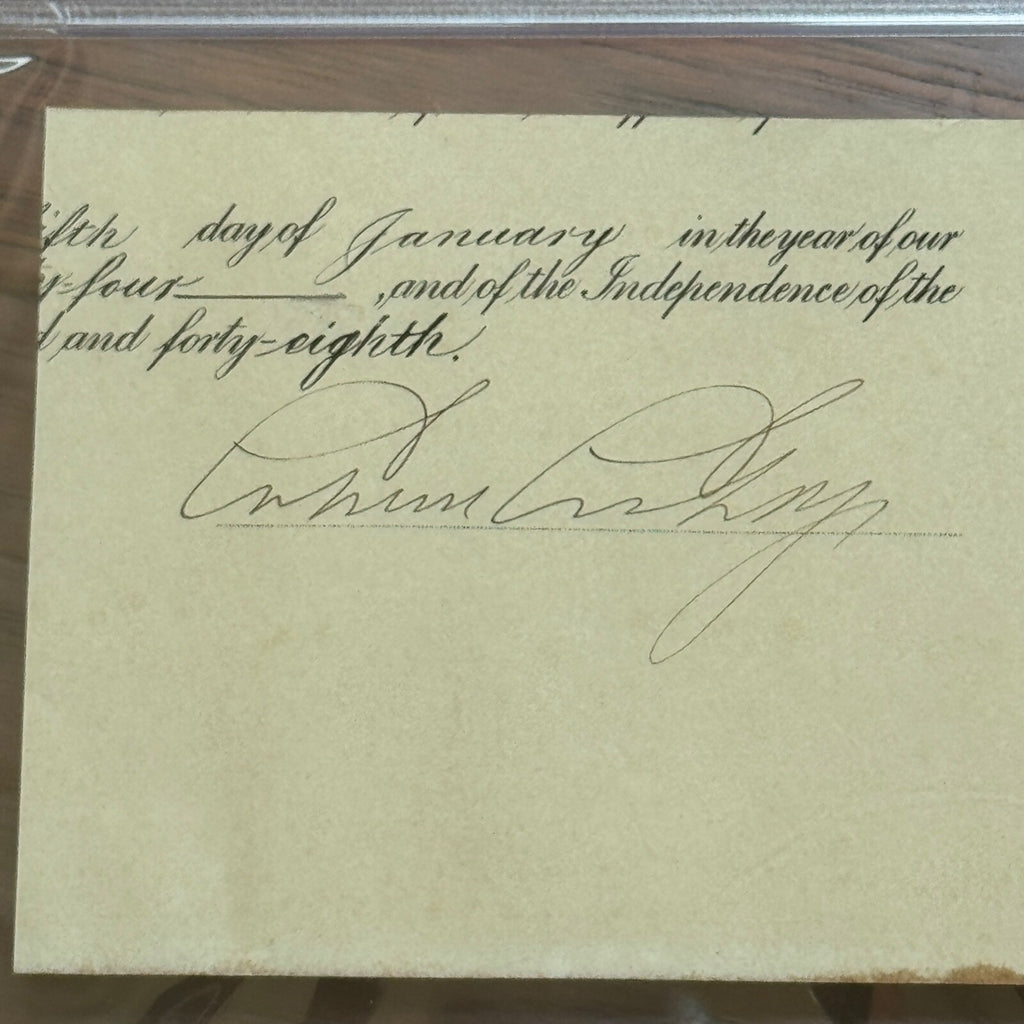 ifth day of January in the year of our
y-four , and of the Independence of the
d and forty-eighth.
Calvin Coolidge